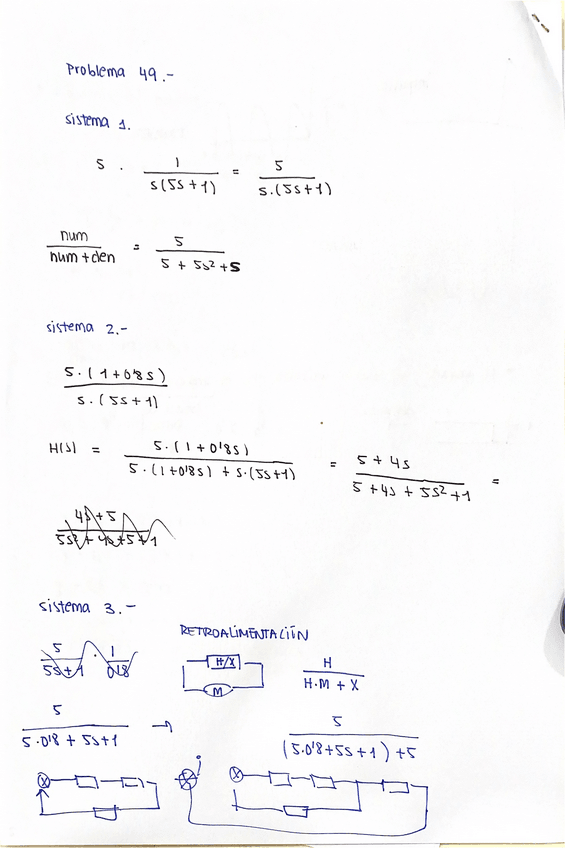 Problema 49.-
sistema 1.
5 · 1/(s(5s+1)) = 5/(s.(5s+1))
num/(num+den) = 5/(5 + 5s² + s)
sistema 2.-
5·(1+0'8s)/(s·(5s+1))
H(s) = 5·(1+0'8s)/(5·(1+0'8s) + s·(5s+1)) = (5+4s)/(5+4s+5s²+1) =
(4s+5)/(5s²+4s+5+1)
sistema 3.-
RETROALIMENTACIÓN
5/(5s+1) · 1/0'8
H/X
M
H/(H·M + X)
5/(5·0'8 + 5s+1) → 5/((5·0'8+5s+1)+5)